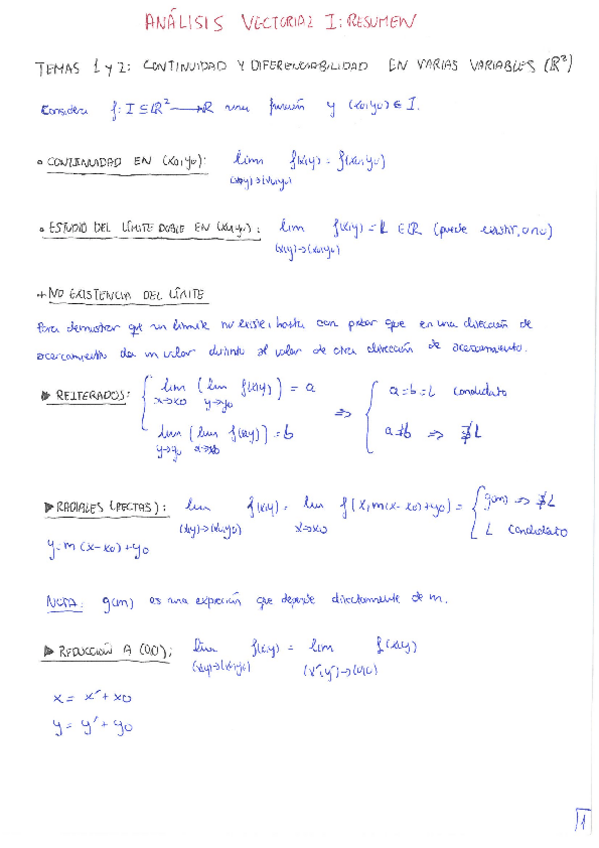 ANÁLISIS VECTORIAL I: RESUMEN
TEMAS 1 y 2: CONTINUIDAD Y DIFERENCIABILIDAD EN VARIAS VARIABLES (R²)
Considera f: I ⊆ R² → R una función y (x₀,y₀) ∈ I.
• CONTINUIDAD EN (x₀,y₀): lim f(x,y) = f(x₀,y₀)
(x,y)→(x₀,y₀)
• ESTUDIO DEL LÍMITE DOBLE EN (x₀,y₀): lim f(x,y) = L ∈ R (puede existir, o no)
(x,y)→(x₀,y₀)
+ NO EXISTENCIA DEL LÍMITE
Para demostrar que un límite no existe, basta con probar que en una dirección de
acercamiento da un valor distinto al valor de otra dirección de acercamiento.
▶ REITERADOS: { lim ( lim f(x,y) ) = a ⇒ { a=b=L candidato
x→x₀ y→y₀
lim ( lim f(x,y) ) = b a≠b ⇒ ∄L
y→y₀ x→x₀
▶ RADIALES (RECTAS): lim f(x,y) = lim f(x, m(x-x₀)+y₀) = { g(m) ⇒ ∄L
(x,y)→(x₀,y₀) x→x₀ L candidato
y=m(x-x₀)+y₀
NOTA: g(m) es una expresión que depende directamente de m.
▶ REDUCCIÓN A (0,0): lim f(x,y) = lim f(x,y)
(x,y)→(x₀,y₀) (x',y')→(0,0)
x = x' + x₀
y = y' + y₀
1